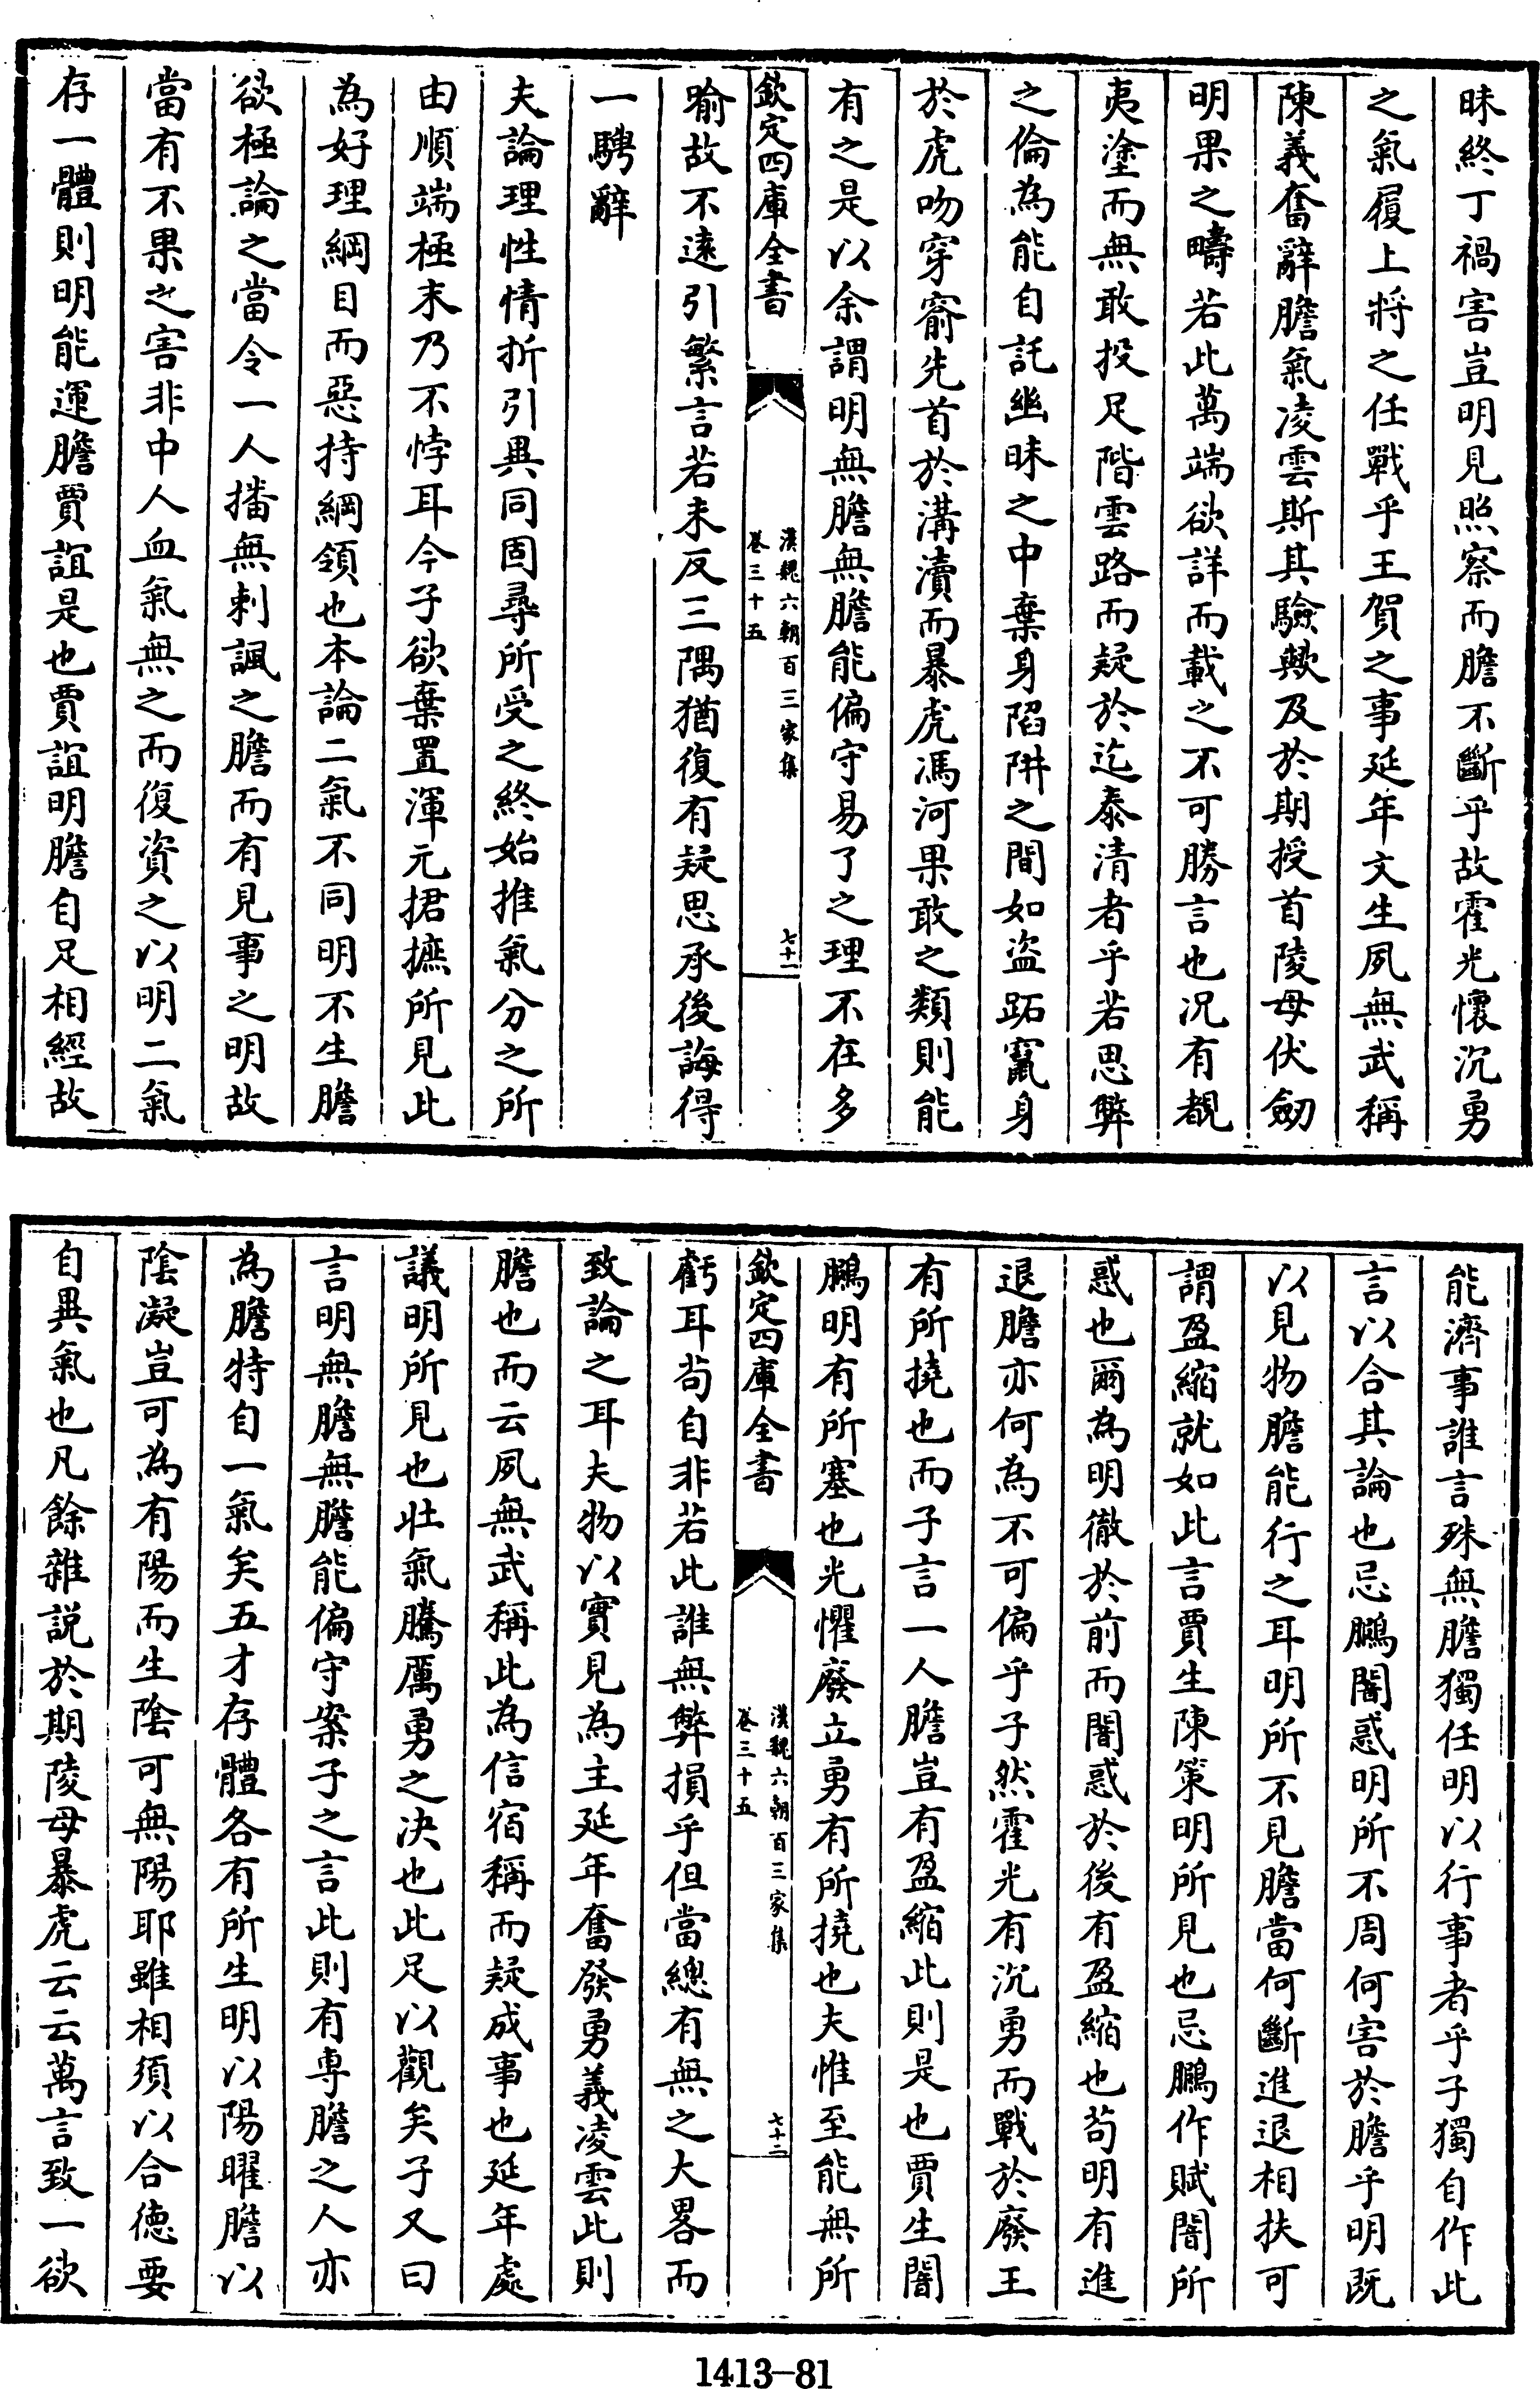 昧終丁禍害豈明見照察而膽不斷乎故霍光懷沉勇
之氣履上將之任戰乎王賀之事延年文生夙無武稱
陳義奮辭膽氣凌雲斯其驗歟及於期授首陵母伏劒
明果之疇若此萬端欲詳而載之不可勝言也况有覩
夷塗而無敢投足階雲路而疑於迄泰清者乎若思弊
之倫為能自託幽昧之中棄身陷阱之間如盜跖竄身
於虎吻穿窬先首於溝瀆而暴虎馮河果敢之類則能
有之是以余謂明無膽無膽能偏守易了之理不在多
欽定四庫全書
漢魏六朝百三家集
卷三十五
七十一
喻故不遠引繁言若未反三隅猶復有疑思承後誨得
一騁辭
夫論理性情折引異同固尋所受之終始推氣分之所
由順端極末乃不悖耳今子欲棄置渾元捃摭所見此
為好理綱目而惡持綱領也本論二氣不同明不生膽
欲極論之當令一人播無刺諷之膽而有見事之明故
當有不果之害非中人血氣無之而復資之以明二氣
存一體則明能運膽賈誼是也賈誼明膽自足相經故
能濟事誰言殊無膽獨任明以行事者乎子獨自作此
言以合其論也忌鵩闇惑明所不周何害於膽乎明既
以見物膽能行之耳明所不見膽當何斷進退相扶可
謂盈縮就如此言賈生陳策明所見也忌鵩作賦闇所
惑也爾為明徹於前而闇惑於後有盈縮也苟明有進
退膽亦何為不可偏乎子然霍光有沉勇而戰於廢王
有所撓也而子言一人膽豈有盈縮此則是也賈生闇
鵩明有所塞也光懼廢立勇有所撓也夫惟至能無所
欽定四庫全書
漢魏六朝百三家集
卷三十五
七十二
虧耳茍自非若此誰無弊損乎但當總有無之大畧而
致論之耳夫物以實見為主延年奮發勇義凌雲此則
膽也而云夙無武稱此為信宿稱而疑成事也延年處
議明所見也壯氣騰厲勇之决也此足以觀矣子又曰
言明無膽無膽能偏守案子之言此則有專膽之人亦
為膽特自一氣矣五才存體各有所生明以陽曜膽以
陰凝豈可為有陽而生陰可無陽耶雖相須以合徳要
自異氣也凡餘雜説於期陵母暴虎云云萬言致一欲
1413-81